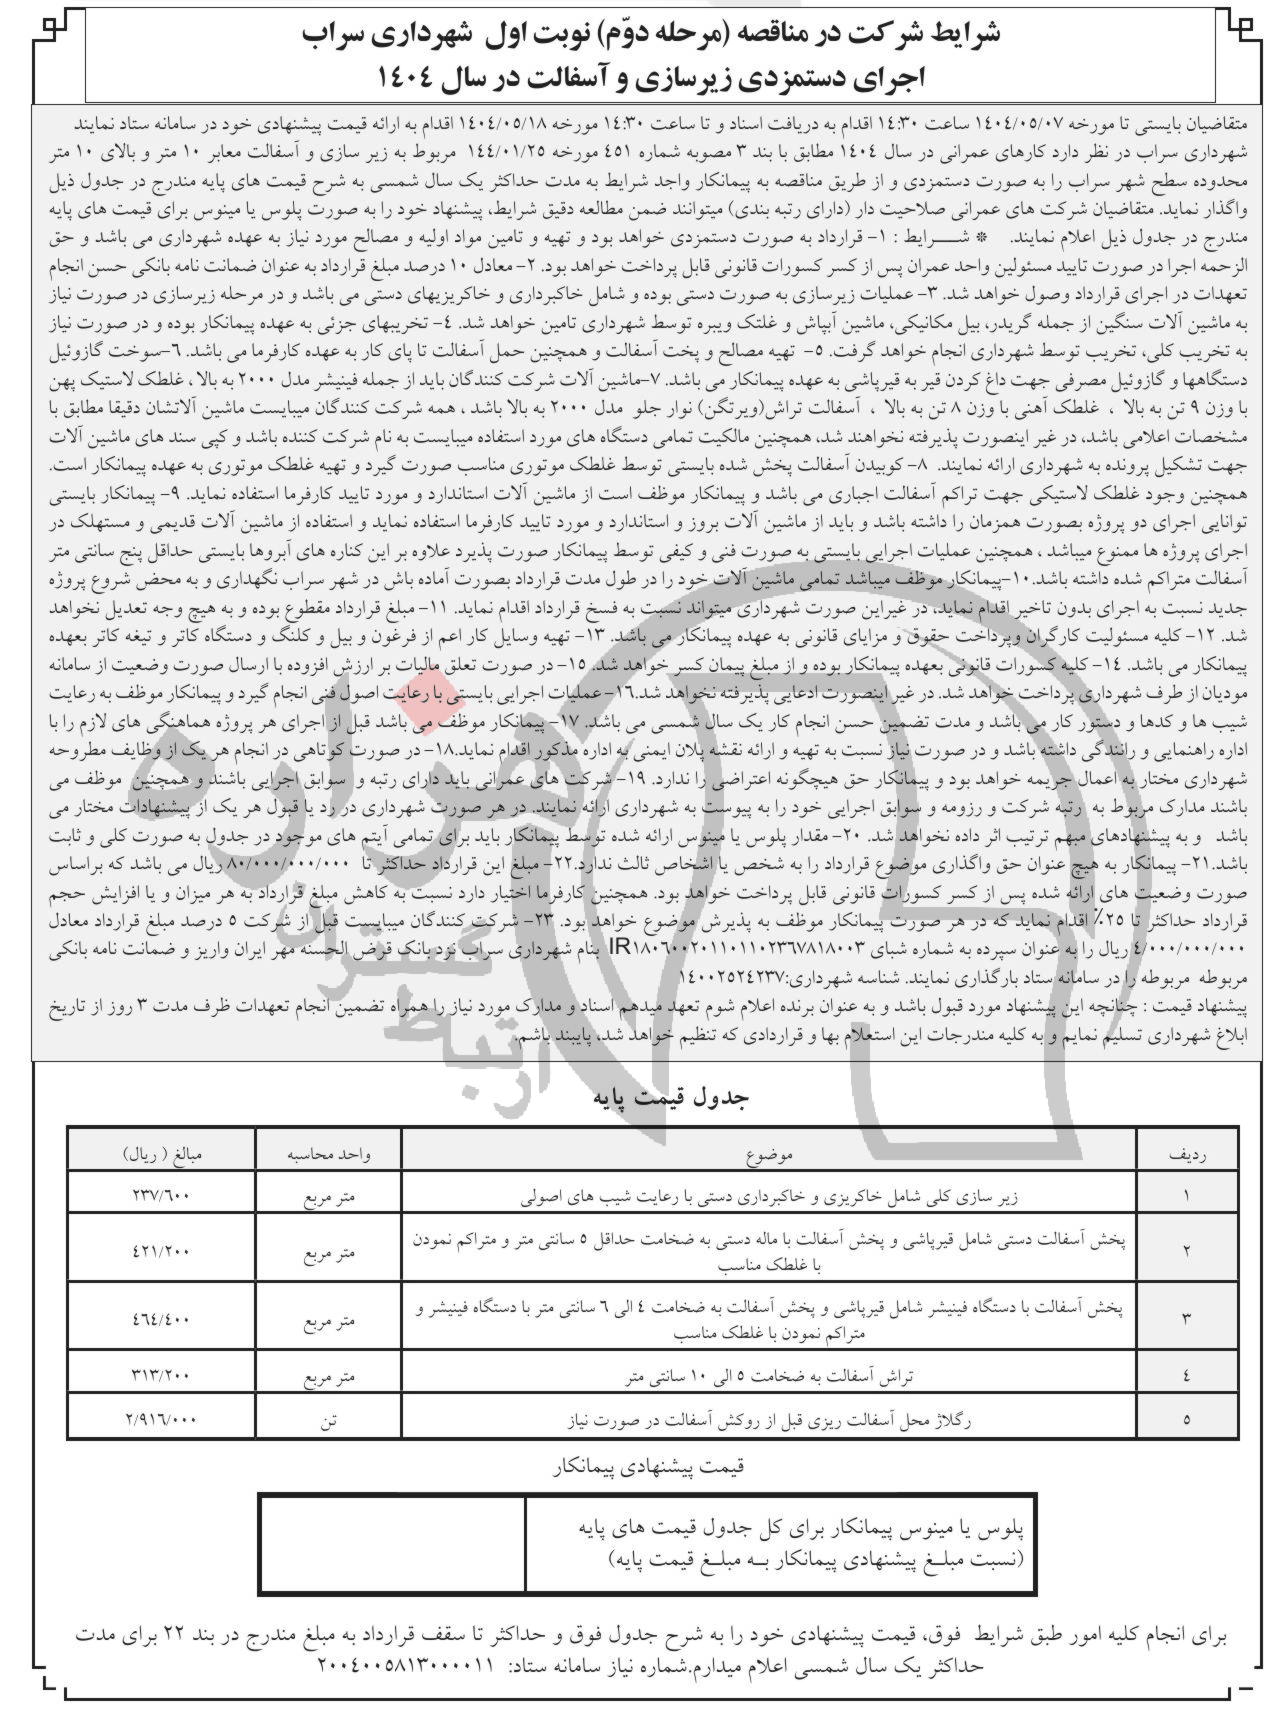 شرایط شرکت در مناقصه (مرحله دوّم) نوبت اول شهرداری سراب
اجرای دستمزدی زیرسازی و آسفالت در سال ١٤٠٤
متقاضیان بایستی تا مورخه ١٤٠٤/٠٥/٠٧ ساعت ١٤:٣٠ اقدام به دریافت اسناد و تا ساعت ١٤:٣٠ مورخه ١٤٠٤/٠٥/١٨ اقدام به ارائه قیمت پیشنهادی خود در سامانه ستاد نمایند
شهرداری سراب در نظر دارد کارهای عمرانی در سال ١٤٠٤ مطابق با بند ٣ مصوبه شماره ٤٥١ مورخه ١٤٤/٠١/٢٥ مربوط به زیر سازی و آسفالت معابر ١٠ متر و بالای ١٠ متر
محدوده سطح شهر سراب را به صورت دستمزدی و از طریق مناقصه به پیمانکار واجد شرایط به مدت حداکثر یک سال شمسی به شرح قیمت های پایه مندرج در جدول ذیل
واگذار نماید. متقاضیان شرکت های عمرانی صلاحیت دار (دارای رتبه بندی) میتوانند ضمن مطالعه دقیق شرایط، پیشنهاد خود را به صورت پلوس یا مینوس برای قیمت های پایه
مندرج در جدول ذیل اعلام نمایند. * شـــرایط : ١- قرارداد به صورت دستمزدی خواهد بود و تهیه و تامین مواد اولیه و مصالح مورد نیاز به عهده شهرداری می باشد و حق
الزحمه اجرا در صورت تایید مسئولین واحد عمران پس از کسر کسورات قانونی قابل پرداخت خواهد بود. ٢- معادل ١٠ درصد مبلغ قرارداد به عنوان ضمانت نامه بانکی حسن انجام
تعهدات در اجرای قرارداد وصول خواهد شد. ٣- عملیات زیرسازی به صورت دستی بوده و شامل خاکبرداری و خاکریزیهای دستی می باشد و در مرحله زیرسازی در صورت نیاز
به ماشین آلات سنگین از جمله گریدر، بیل مکانیکی، ماشین آبپاش و غلتک ویبره توسط شهرداری تامین خواهد شد. ٤- تخریبهای جزئی به عهده پیمانکار بوده و در صورت نیاز
به تخریب کلی، تخریب توسط شهرداری انجام خواهد گرفت. ٥- تهیه مصالح و پخت آسفالت و همچنین حمل آسفالت تا پای کار به عهده کارفرما می باشد. ٦-سوخت گازوئیل
دستگاهها و گازوئیل مصرفی جهت داغ کردن قیر به قیرپاشی به عهده پیمانکار می باشد. ٧-ماشین آلات شرکت کنندگان باید از جمله فینیشر مدل ٢٠٠٠ به بالا، غلطک لاستیک پهن
با وزن ٩ تن به بالا ، غلطک آهنی با وزن ٨ تن به بالا ، آسفالت تراش(ویرتگن) نوار جلو مدل ٢٠٠٠ به بالا باشد ، همه شرکت کنندگان میبایست ماشین آلاتشان دقیقا مطابق با
مشخصات اعلامی باشد، در غیر اینصورت پذیرفته نخواهند شد، همچنین مالکیت تمامی دستگاه های مورد استفاده میبایست به نام شرکت کننده باشد و کپی سند های ماشین آلات
جهت تشکیل پرونده به شهرداری ارائه نمایند. ٨- کوبیدن آسفالت پخش شده بایستی توسط غلطک موتوری مناسب صورت گیرد و تهیه غلطک موتوری به عهده پیمانکار است.
همچنین وجود غلطک لاستیکی جهت تراکم آسفالت اجباری می باشد و پیمانکار موظف است از ماشین آلات استاندارد و مورد تایید کارفرما استفاده نماید. ٩- پیمانکار بایستی
توانایی اجرای دو پروژه بصورت همزمان را داشته باشد و باید از ماشین آلات بروز و استاندارد و مورد تایید کارفرما استفاده نماید و استفاده از ماشین آلات قدیمی و مستهلک در
اجرای پروژه ها ممنوع میباشد ، همچنین عملیات اجرایی بایستی به صورت فنی و کیفی توسط پیمانکار صورت پذیرد علاوه بر این کناره های آبروها بایستی حداقل پنج سانتی متر
آسفالت متراکم شده داشته باشد.١٠-پیمانکار موظف میباشد تمامی ماشین آلات خود را در طول مدت قرارداد بصورت آماده باش در شهر سراب نگهداری و به محض شروع پروژه
جدید نسبت به اجرای بدون تاخیر اقدام نماید، در غیراین صورت شهرداری میتواند نسبت به فسخ قرارداد اقدام نماید. ١١- مبلغ قرارداد مقطوع بوده و به هیچ وجه تعدیل نخواهد
شد. ١٢- کلیه مسئولیت کارگران وپرداخت حقوق و مزایای قانونی به عهده پیمانکار می باشد. ١٣- تهیه وسایل کار اعم از فرغون و بیل و کلنگ و دستگاه کاتر و تیغه کاتر بعهده
پیمانکار می باشد. ١٤- کلیه کسورات قانونی بعهده پیمانکار بوده و از مبلغ پیمان کسر خواهد شد. ١٥- در صورت تعلق مالیات بر ارزش افزوده با ارسال صورت وضعیت از سامانه
مودیان از طرف شهرداری پرداخت خواهد شد. در غیر اینصورت ادعایی پذیرفته نخواهد شد.١٦- عملیات اجرایی بایستی با رعایت اصول فنی انجام گیرد و پیمانکار موظف به رعایت
شیب ها و کدها و دستور کار می باشد و مدت تضمین حسن انجام کار یک سال شمسی می باشد. ١٧- پیمانکار موظف می باشد قبل از اجرای هر پروژه هماهنگی های لازم را با
اداره راهنمایی و رانندگی داشته باشد و در صورت نیاز نسبت به تهیه و ارائه نقشه پلان ایمنی به اداره مذکور اقدام نماید.١٨- در صورت کوتاهی در انجام هر یک از وظایف مطروحه
شهرداری مختار به اعمال جریمه خواهد بود و پیمانکار حق هیچگونه اعتراضی را ندارد. ١٩- شرکت های عمرانی باید دارای رتبه و سوابق اجرایی باشند و همچنین موظف می
باشند مدارک مربوط به رتبه شرکت و رزومه و سوابق اجرایی خود را به پیوست به شهرداری ارائه نمایند. در هر صورت شهرداری در رد یا قبول هر یک از پیشنهادات مختار می
باشد و به پیشنهادهای مبهم ترتیب اثر داده نخواهد شد. ٢٠- مقدار پلوس یا مینوس ارائه شده توسط پیمانکار باید برای تمامی آیتم های موجود در جدول به صورت کلی و ثابت
باشد.٢١- پیمانکار به هیچ عنوان حق واگذاری موضوع قرارداد را به شخص یا اشخاص ثالث ندارد.٢٢- مبلغ این قرارداد حداکثر تا ٨٠/٠٠٠/٠٠٠/٠٠٠ ریال می باشد که براساس
صورت وضعیت های ارائه شده پس از کسر کسورات قانونی قابل پرداخت خواهد بود. همچنین کارفرما اختیار دارد نسبت به کاهش مبلغ قرارداد به هر میزان و یا افزایش حجم
قرارداد حداکثر تا ٢٥٪ اقدام نماید که در هر صورت پیمانکار موظف به پذیرش موضوع خواهد بود. ٢٣- شرکت کنندگان میبایست قبل از شرکت ٥ درصد مبلغ قرارداد معادل
٤/٠٠٠/٠٠٠/٠٠٠ ریال را به عنوان سپرده به شماره شبای IR١٨٠٦٠٠٢٠١١٠١١٠٢٣٦٧٨١٨٠٠٣ بنام شهرداری سراب نزد بانک قرض الحسنه مهر ایران واریز و ضمانت نامه بانکی
مربوطه مربوطه را در سامانه ستاد بارگذاری نمایند. شناسه شهرداری:١٤٠٠٢٥٢٤٢٣٧
پیشنهاد قیمت : چنانچه این پیشنهاد مورد قبول باشد و به عنوان برنده اعلام شوم تعهد میدهم اسناد و مدارک مورد نیاز را همراه تضمین انجام تعهدات ظرف مدت ٣ روز از تاریخ
ابلاغ شهرداری تسلیم نمایم و به کلیه مندرجات این استعلام بها و قراردادی که تنظیم خواهد شد، پایبند باشم.
هزاره
گستر
ارتباط
جدول قیمت پایه
ردیف موضوع واحد محاسبه مبالغ ( ریال)
١ زیر سازی کلی شامل خاکریزی و خاکبرداری دستی با رعایت شیب های اصولی متر مربع ٢٣٧/٦٠٠
٢ پخش آسفالت دستی شامل قیرپاشی و پخش آسفالت با ماله دستی به ضخامت حداقل ٥ سانتی متر و متراکم نمودن
با غلطک مناسب متر مربع ٤٢١/٢٠٠
٣ پخش آسفالت با دستگاه فینیشر شامل قیرپاشی و پخش آسفالت به ضخامت ٤ الی ٦ سانتی متر با دستگاه فینیشر و
متراکم نمودن با غلطک مناسب متر مربع ٤٦٤/٤٠٠
٤ تراش آسفالت به ضخامت ٥ الی ١٠ سانتی متر متر مربع ٣١٣/٢٠٠
٥ رگلاژ محل آسفالت ریزی قبل از روکش آسفالت در صورت نیاز تن ٢/٩١٦/٠٠٠
قیمت پیشنهادی پیمانکار
پلوس یا مینوس پیمانکار برای کل جدول قیمت های پایه
(نسبت مبلـغ پیشنهادی پیمانکار بـه مبلـغ قیمت پایه)
برای انجام کلیه امور طبق شرایط فوق، قیمت پیشنهادی خود را به شرح جدول فوق و حداکثر تا سقف قرارداد به مبلغ مندرج در بند ٢٢ برای مدت
حداکثر یک سال شمسی اعلام میدارم.شماره نیاز سامانه ستاد: ٢٠٠٤٠٠٥٨١٣٠٠٠٠١١